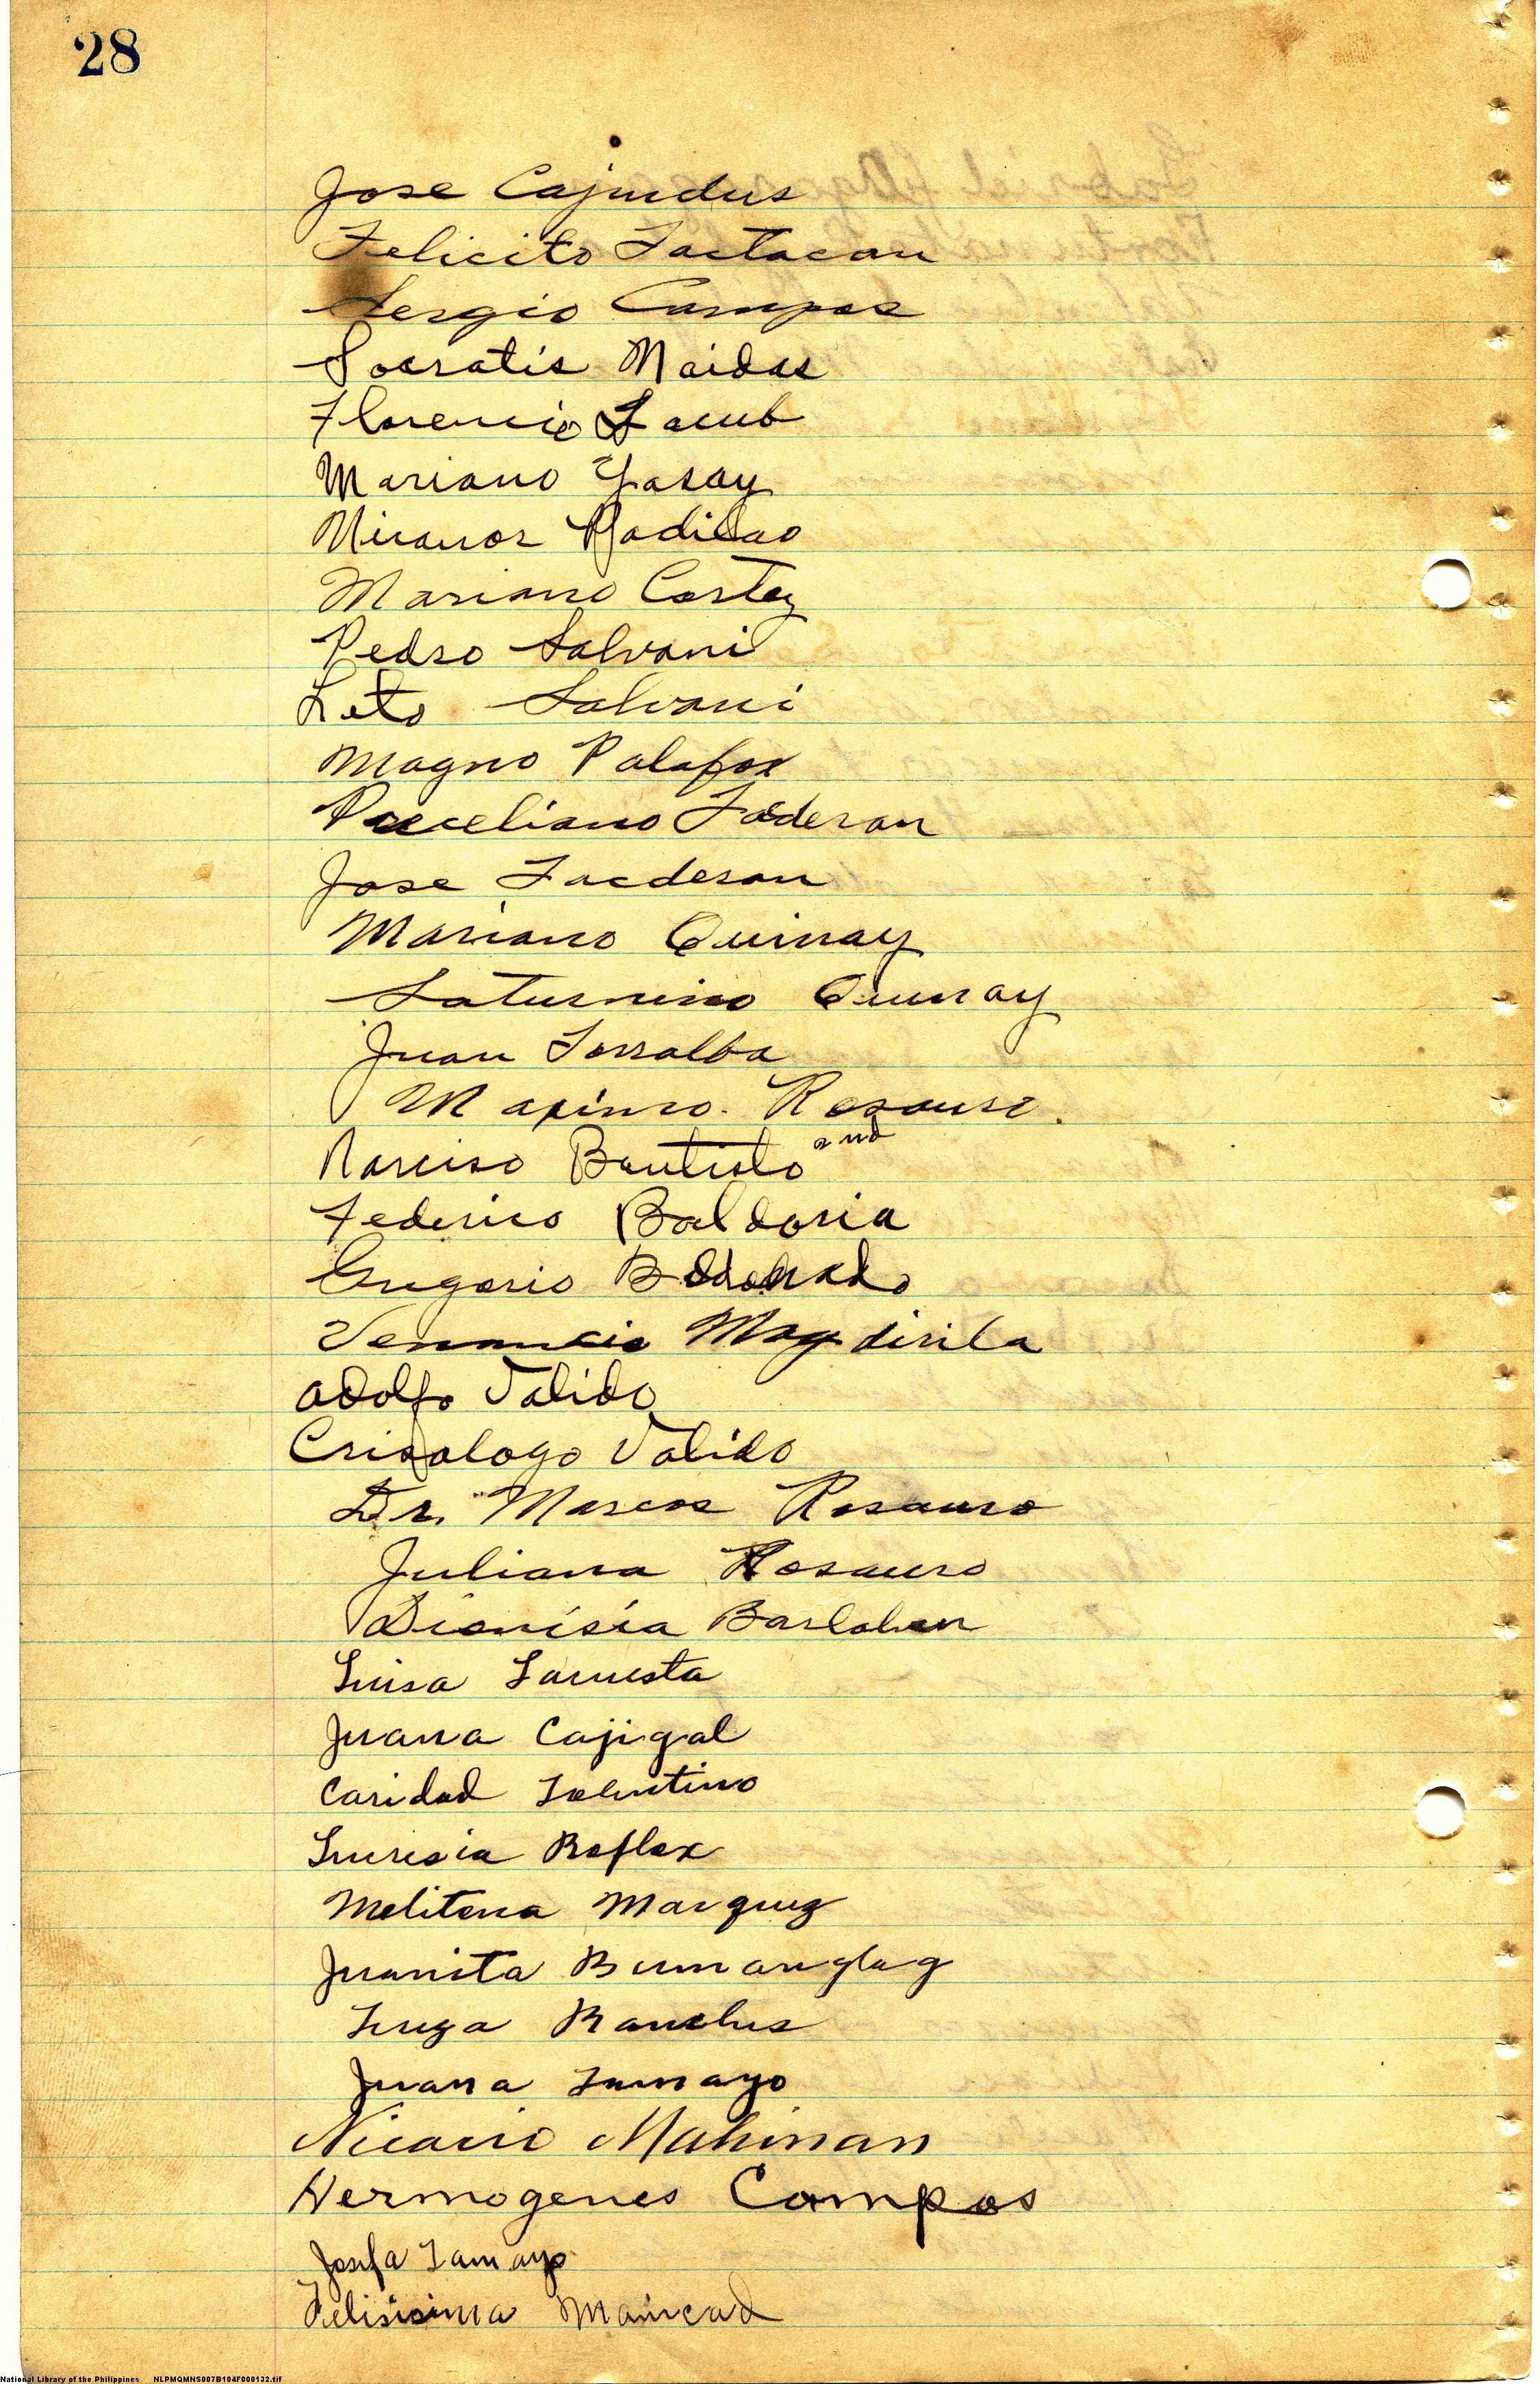 28
Jose Cajudus
Felicito Lactacan
Sergio Campos
Socratis Naidas
Florencio Lacub
Mariano Yasay
Nicanor Padilao
Mariano Cortez
Pedro Salvani
Leto Salvani
Magno Palafox
Faderan
Jose Facderan
Mariano Quinay
Saturnino Quinay
Juan Torralba
Maximo. Rosauro.
Narciso Bautista 2nd
Federico Baldoria
Gregorio
Venancio Magdirila
Adolfo Valido
Crisologo Valido
Dr. Marcos Rosauro
Juliana Rosauro
Dionisia Barlahan
Luisa Lacuesta
Juana Cajigal
Caridad Tolentino
Lucresia Roflox
Melitona Marquez
Juanita Bumanglag
Luza Ranelus
Juana Tumayo
Nicacio Mahinan
Hermogenes Campos
Josefa Tamayo
Felisisima Maincad
National Library of the Philippines NLPMQMNS007B104F000132.tif